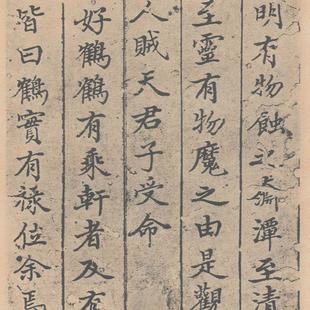 明有物蝕之潭至清
至靈有物魔之由是觀
人賊天君子受命
好鶴鶴有乘軒者及有
皆曰鶴實有祿位余焉